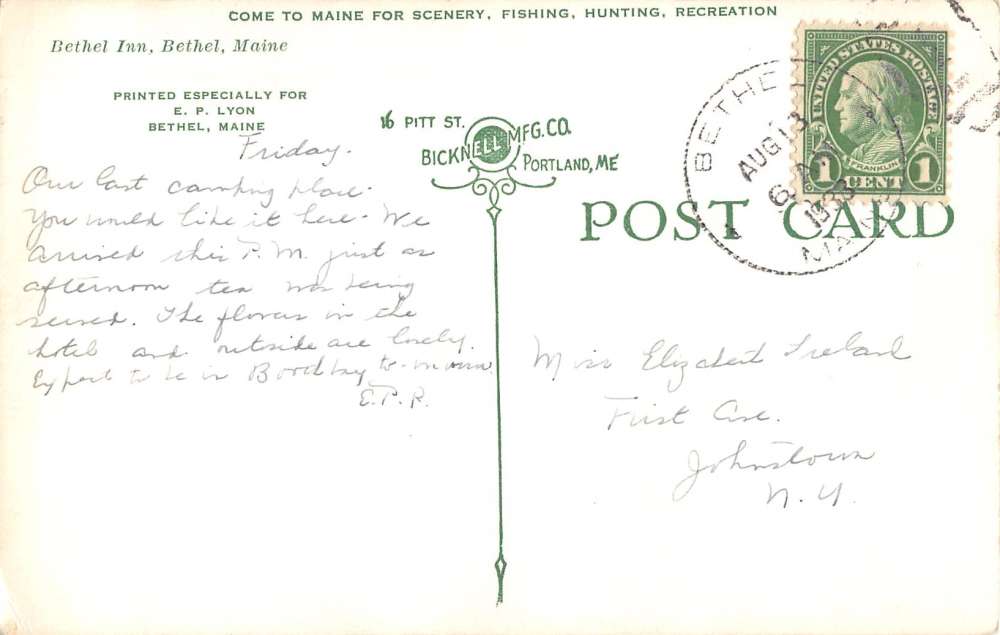 COME TO MAINE FOR SCENERY, FISHING, HUNTING, RECREATION
Bethel Inn, Bethel, Maine
PRINTED ESPECIALLY FOR
E. P. LYON
BETHEL, MAINE
16 PITT ST.
BICKNELL MFG. CO.
PORTLAND, ME
POST CARD
BETHEL
AUG 13
6 AM
1933
MAINE
UNITED STATES POSTAGE
FRANKLIN
1 CENT 1
Friday.
Our last camping place.
You would like it here. We
arrived this P.M. just as
afternoon tea was being
served. The flowers in the
hotel and outside are lovely.
Expect to be in Boothbay to-morrow.
E.P.R.
Miss Elizabeth Ireland
First Ave.
Johnstown
N.Y.